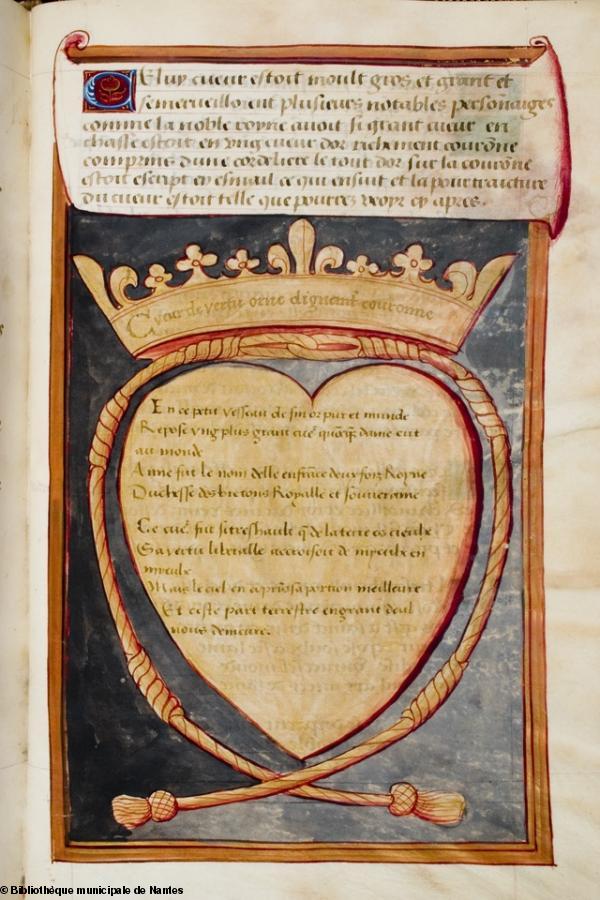 Celuy cueur estoit moult gros et grant et
semerveilloient plusieurs notables personaiges
comme la noble royne avoit si grant cueur en
chasse estoit en ung cueur dor richement couronne
comprins dune cordeliere le tout dor sur la couronne
estoit escript en esmail ce qui ensuit et la pourtraicture
du cueur estoit telle que pourres veoyr cy apres.
Cueur de vertu orne dignemt couronne
En ce petit vesseau de fin or pur et munde
Repose ung plus grant cue que dame eut
au monde
Anne fut le nom delle en france deux fois Royne
Duchesse des bretons Royalle et souveraine
Ce cue fut si treshault q de la terre es cieulx
Sa vertu liberalle accroissoit de myeulx en
myeulx
Mais le ciel en a prins sa portion meilleure
Et ceste part terrestre en grant deul
nous demeure.
© Bibliothèque municipale de Nantes